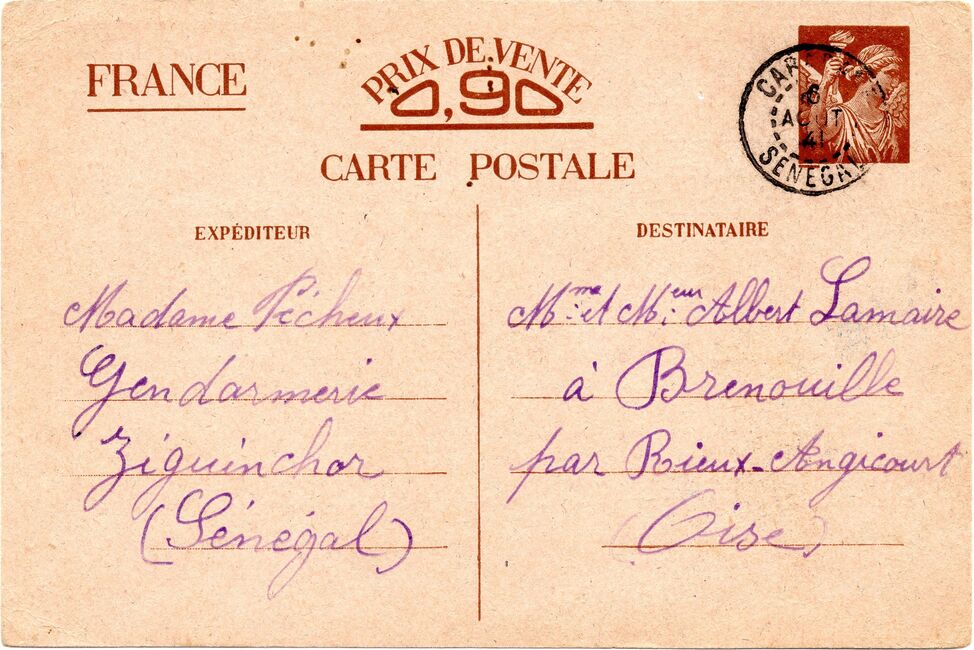 FRANCE
PRIX DE VENTE
0,90
CARTE POSTALE
6
AOUT
41
SENEGAL
EXPÉDITEUR
Madame Pécheux
Gendarmerie
Ziguinchor
(Sénégal)
DESTINATAIRE
Mme et Mieur Albert Lamaire
à Brenouille
par Rieux-Angicourt
(Oise)